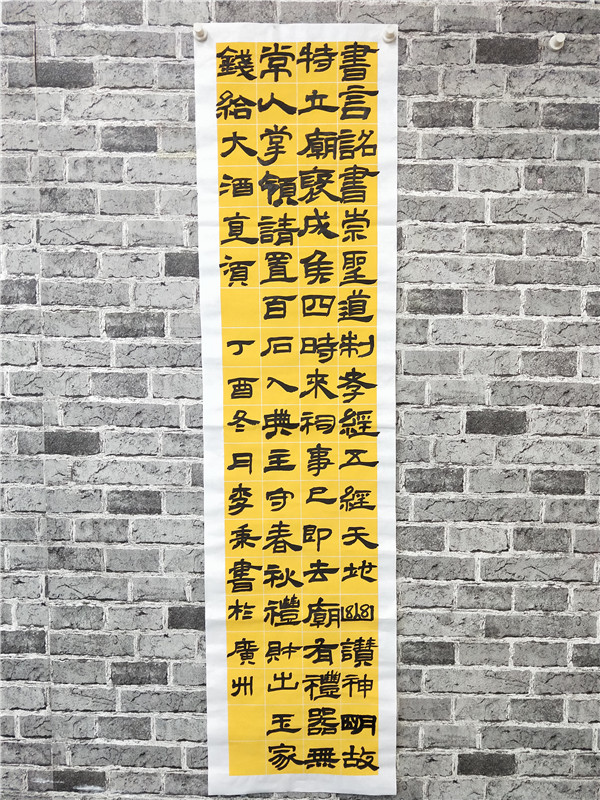 書言詔書崇聖道制孝經五經天地幽讚神明故
特立廟褒成侯四時來祠事已即去廟有禮器無
常人掌領請置百石人典主守春秋禮財出王家
錢給大酒直須 丁酉冬月李秉書於廣州